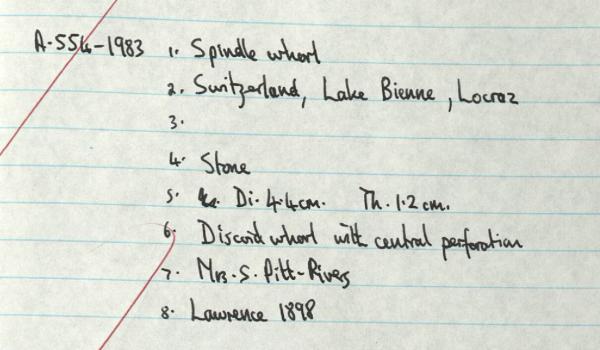 A.554-1983 1. Spindle whorl
2. Switzerland, Lake Bienne, Locraz
3.
4. Stone
5. Di. 4.4cm. Th. 1.2cm.
6. Discoid whorl with central perforation
7. Mrs. S. Pitt-Rivers
8. Lawrence 1898